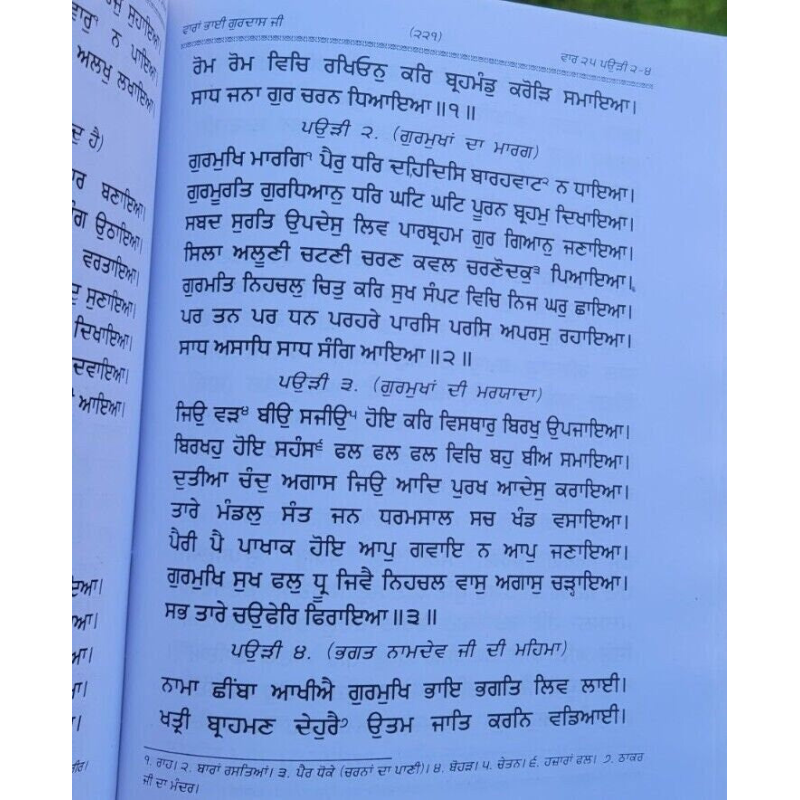 ਸੁਹਾਇਆ।
ਨ ਪਾਇਆ।
ਅਲਖੁ ਲਖਾਇਆ।
ਹੈ)
ਬਣਾਇਆ।
ਉਠਾਇਆ।
ਵਰਤਾਇਆ।
ਸੁਣਾਇਆ।
ਦਿਖਾਇਆ।
ਦਵਾਇਆ।
ਆਇਆ।
ਵਾਰਾਂ ਭਾਈ ਗੁਰਦਾਸ ਜੀ
(੨੨੧)
ਵਾਰ ੨੫ ਪਉੜੀ ੨-੪
ਰੋਮ ਰੋਮ ਵਿਚਿ ਰਖਿਓਨੁ ਕਰਿ ਬ੍ਰਹਮੰਡੁ ਕਰੋੜਿ ਸਮਾਇਆ।
ਸਾਧ ਜਨਾ ਗੁਰ ਚਰਨ ਧਿਆਇਆ॥੧॥
ਪਉੜੀ ੨. (ਗੁਰਮੁਖਾਂ ਦਾ ਮਾਰਗ)
ਗੁਰਮੁਖਿ ਮਾਰਗਿ੧ ਪੈਰੁ ਧਰਿ ਦਹਿਦਿਸਿ ਬਾਰਹਵਾਟ੨ ਨ ਧਾਇਆ।
ਗੁਰਮੂਰਤਿ ਗੁਰਧਿਆਨੁ ਧਰਿ ਘਟਿ ਘਟਿ ਪੂਰਨ ਬ੍ਰਹਮੁ ਦਿਖਾਇਆ।
ਸਬਦ ਸੁਰਤਿ ਉਪਦੇਸੁ ਲਿਵ ਪਾਰਬ੍ਰਹਮ ਗੁਰ ਗਿਆਨੁ ਜਣਾਇਆ।
ਸਿਲਾ ਅਲੂਣੀ ਚਟਣੀ ਚਰਣ ਕਵਲ ਚਰਣੋਦਕੁ੩ ਪਿਆਇਆ।
ਗੁਰਮਤਿ ਨਿਹਚਲੁ ਚਿਤੁ ਕਰਿ ਸੁਖ ਸੰਪਟ ਵਿਚਿ ਨਿਜ ਘਰੁ ਛਾਇਆ।
ਪਰ ਤਨ ਪਰ ਧਨ ਪਰਹਰੇ ਪਾਰਸਿ ਪਰਸਿ ਅਪਰਸੁ ਰਹਾਇਆ।
ਸਾਧ ਅਸਾਧਿ ਸਾਧ ਸੰਗਿ ਆਇਆ॥੨॥
ਪਉੜੀ ੩. (ਗੁਰਮੁਖਾਂ ਦੀ ਮਰਯਾਦਾ)
ਜਿਉ ਵੜ੪ ਬੀਉ ਸਜੀਉ੫ ਹੋਇ ਕਰਿ ਵਿਸਥਾਰੁ ਬਿਰਖੁ ਉਪਜਾਇਆ।
ਬਿਰਖਹੁ ਹੋਇ ਸਹੰਸ੬ ਫਲ ਫਲ ਫਲ ਵਿਚਿ ਬਹੁ ਬੀਅ ਸਮਾਇਆ।
ਦੁਤੀਆ ਚੰਦੁ ਅਗਾਸ ਜਿਉ ਆਦਿ ਪੁਰਖ ਆਦੇਸੁ ਕਰਾਇਆ।
ਤਾਰੇ ਮੰਡਲੁ ਸੰਤ ਜਨ ਧਰਮਸਾਲ ਸਚ ਖੰਡ ਵਸਾਇਆ।
ਪੈਰੀ ਪੈ ਪਾਖਾਕ ਹੋਇ ਆਪੁ ਗਵਾਇ ਨ ਆਪੁ ਜਣਾਇਆ।
ਗੁਰਮੁਖਿ ਸੁਖ ਫਲੁ ਧ੍ਰੂ ਜਿਵੈ ਨਿਹਚਲ ਵਾਸੁ ਅਗਾਸੁ ਚੜ੍ਹਾਇਆ।
ਸਭ ਤਾਰੇ ਚਉਫੇਰਿ ਫਿਰਾਇਆ॥੩॥
ਪਉੜੀ ੪. (ਭਗਤ ਨਾਮਦੇਵ ਜੀ ਦੀ ਮਹਿਮਾ)
ਨਾਮਾ ਛੀਂਬਾ ਆਖੀਐ ਗੁਰਮੁਖਿ ਭਾਇ ਭਗਤਿ ਲਿਵ ਲਾਈ।
ਖਤ੍ਰੀ ਬ੍ਰਾਹਮਣ ਦੇਹੁਰੈ੭ ਉਤਮ ਜਾਤਿ ਕਰਨਿ ਵਡਿਆਈ।
੧. ਰਾਹ। ੨. ਬਾਰਾਂ ਰਸਤਿਆਂ। ੩. ਪੈਰ ਧੋਕੇ (ਚਰਨਾਂ ਦਾ ਪਾਣੀ)। ੪. ਬੋਹੜ। ੫. ਚੇਤਨ। ੬. ਹਜ਼ਾਰਾਂ ਫਲ। ੭. ਠਾਕਰ
ਜੀ ਦਾ ਮੰਦਰ।